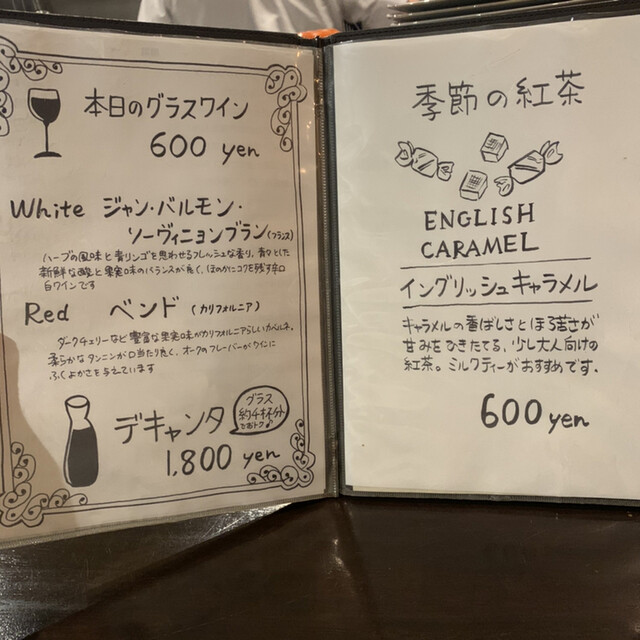 本日のグラスワイン
600 yen
White ジャン・バルモン・
ソーヴィニョンブラン(フランス)
ハーブの風味と青リンゴを思わせるフレッシュな香り。青々とした
新鮮な酸と果実味のバランスが良く、ほのかにコクを残す辛口
白ワインです
Red ベンド (カリフォルニア)
ダークチェリーなど豊富な果実味がカリフォルニアらしいカベルネ。
柔らかなタンニンが口当たり良く、オークのフレーバーがワインに
ふくよかさを与えています
デキャンタ
グラス
約4杯分
でおトク♪
1,800 yen
季節の紅茶
ENGLISH
CARAMEL
イングリッシュキャラメル
キャラメルの香ばしさとほろ苦さが
甘みをひきたてる、少し大人向けの
紅茶。ミルクティーがおすすめです.
600 yen